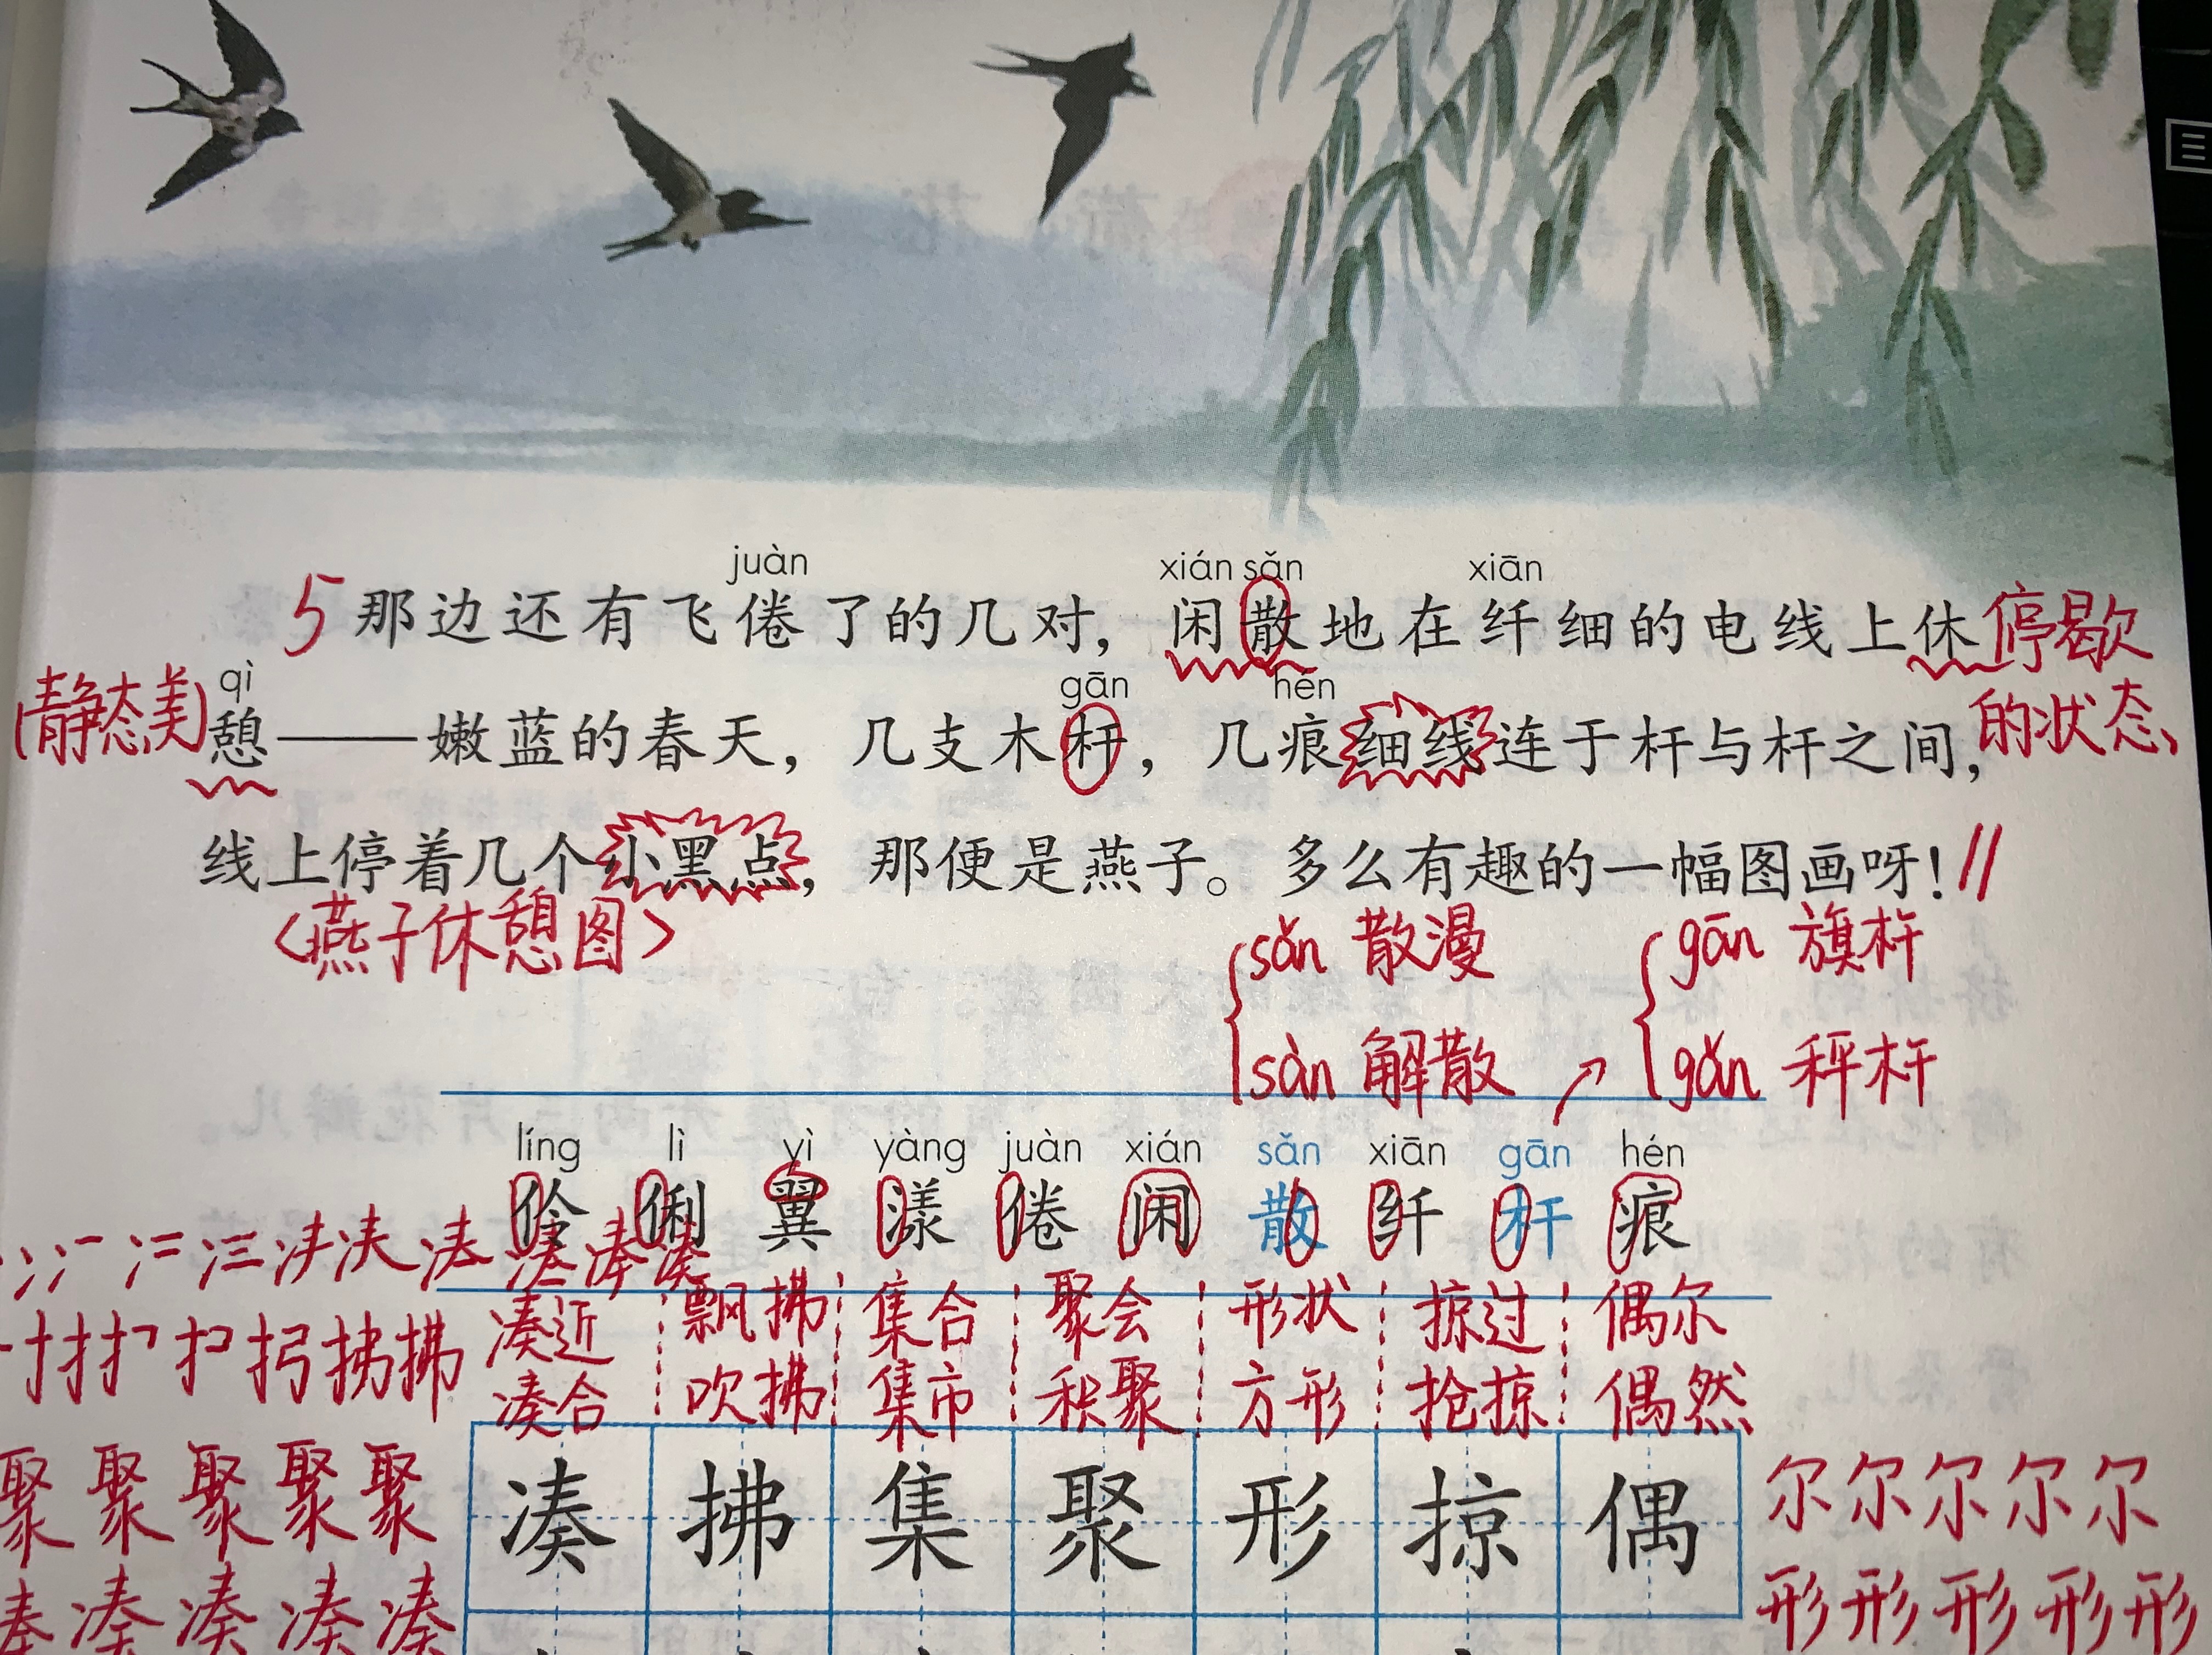 juàn xián sǎn xiān
5 那边还有飞倦了的几对，闲散地在纤细的电线上休 停歇
(静态美) qì gān hén 的状态
憩——嫩蓝的春天，几支木杆，几痕细线连于杆与杆之间，
线上停着几个小黑点，那便是燕子。多么有趣的一幅图画呀！//
<燕子休憩图>
sǎn 散漫 gān 旗杆
sàn 解散 gǎn 秤杆
líng lì yì yàng juàn xián sǎn xiān gān hén
伶 俐 翼 漾 倦 闲 散 纤 杆 痕
凑 凑 凑 凑
凑近 飘拂 集合 聚会 形状 掠过 偶尔
拂 拂
凑合 吹拂 集市 积聚 方形 抢掠 偶然
聚 聚 聚 聚 聚
凑 拂 集 聚 形 掠 偶
尔 尔 尔 尔 尔
凑 凑 凑 凑 凑
形 形 形 形 形